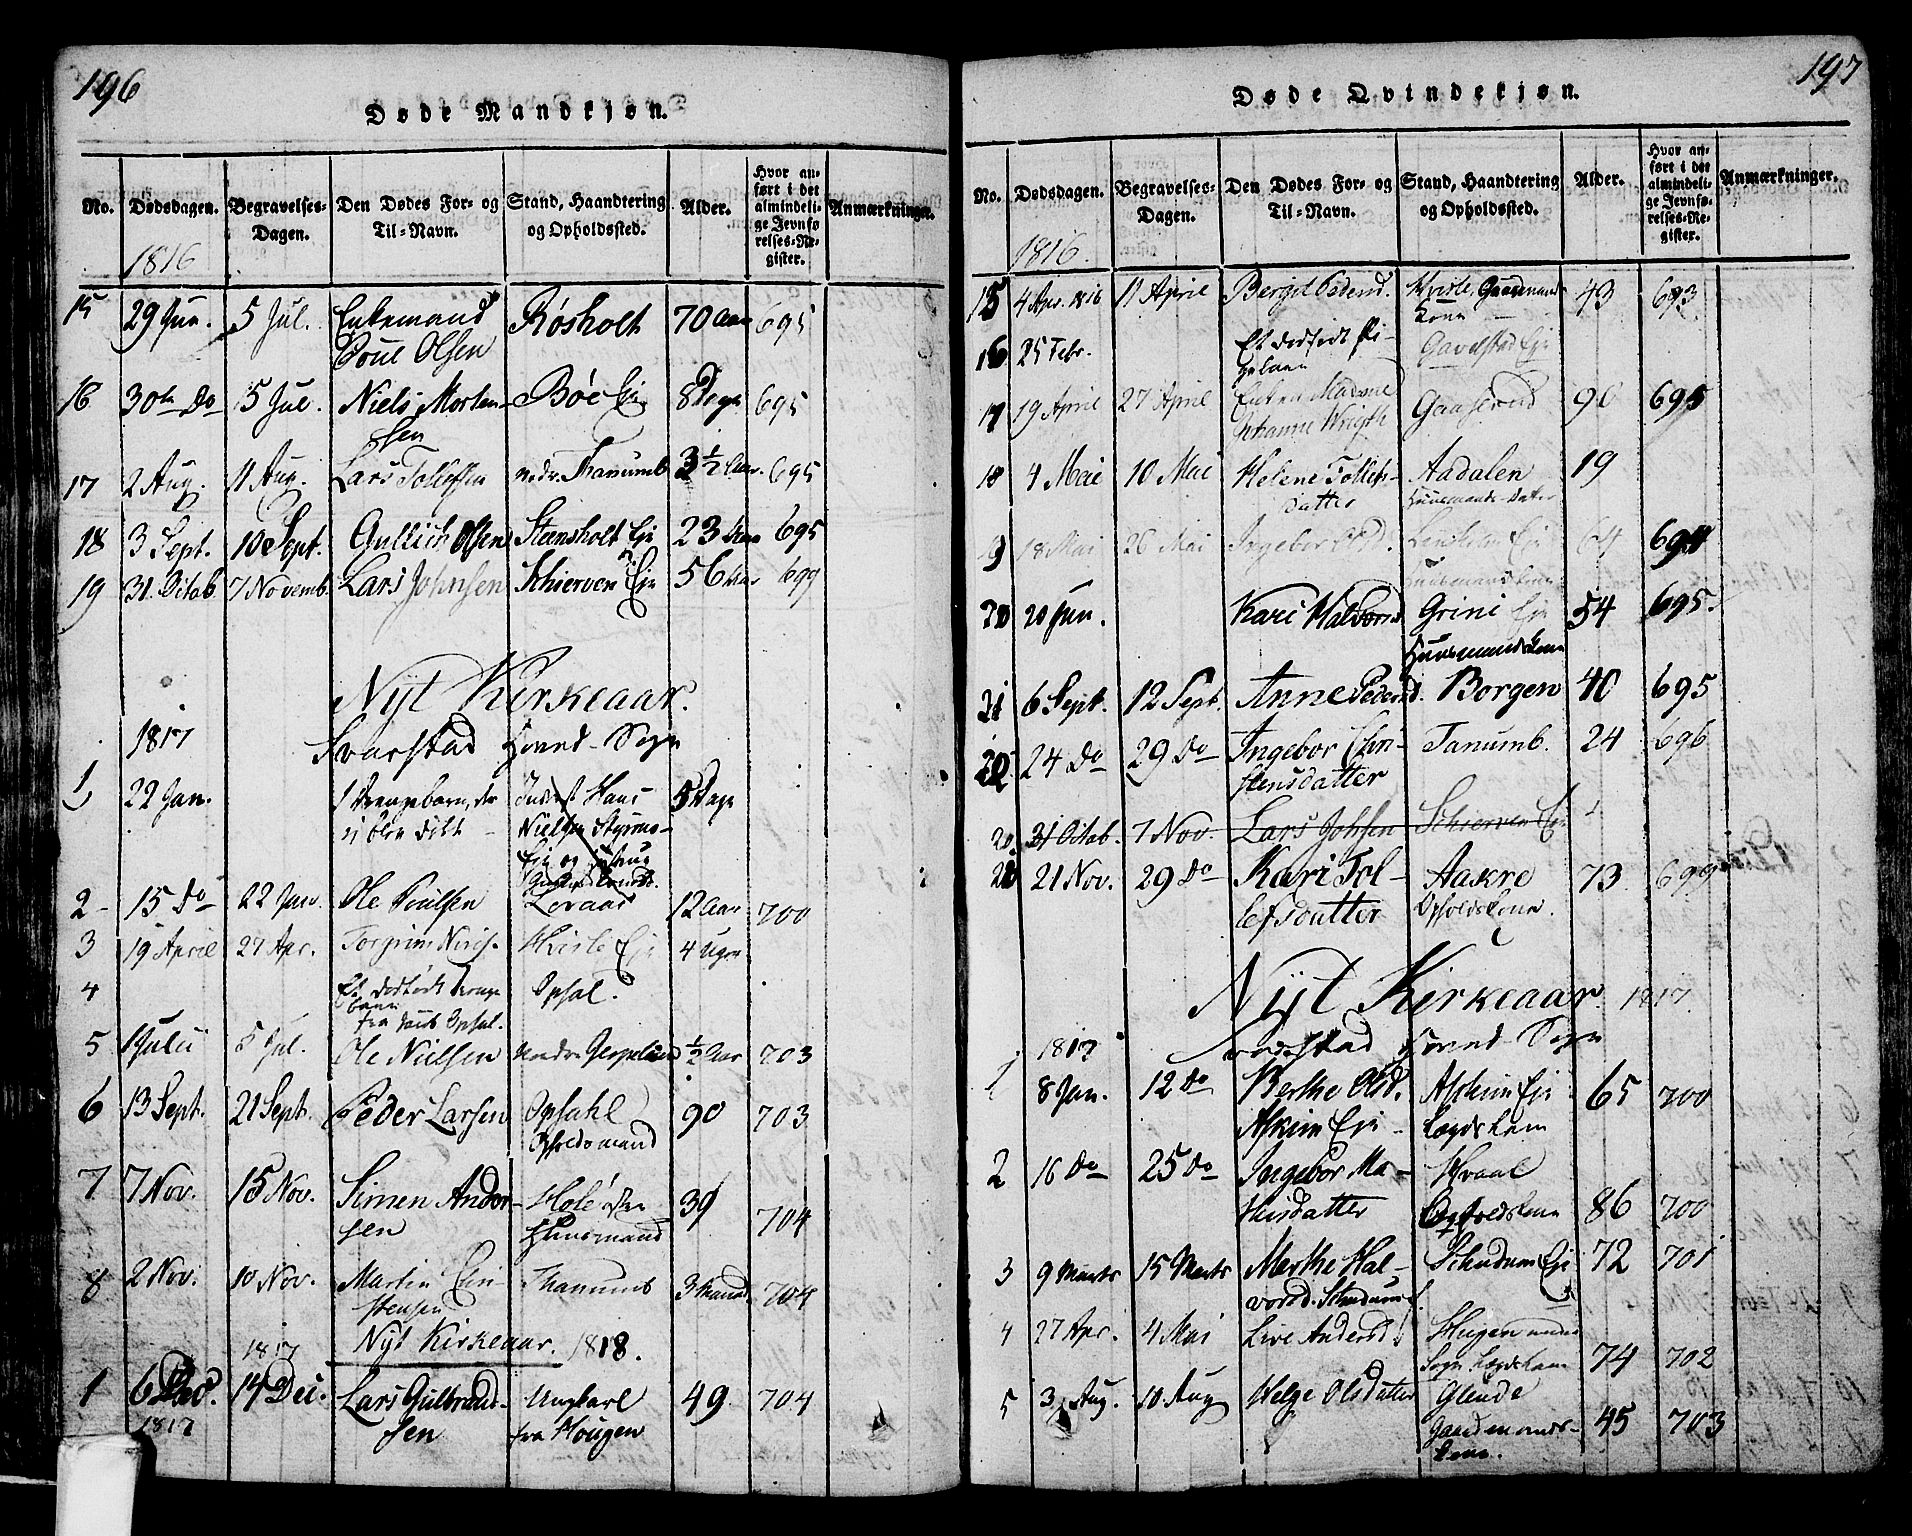 196
Døde Mandkjøn.
No. Dødsdagen. Begravelses-Dagen. Den Dødes For- og Til-Navn. Stand, Haandtering og Opholdssted. Alder. Hvor anført i det almindelige Jevnførelses-Register. Anmærkninger.
1816
15 29 Jun. 5 Jul. Enkemand Røsholt 70 Aar 695
Poul Olsen
16 30te Do 5 Jul. Niels Morten- Böe Eje 8 Dage 695
sen
17 2 Aug. 11 Aug. Lars Tollefsen nedre Thanumb 3 1/2 Aar. 695
18 3 Sept. 10 Sept. Gullich Olsen Steensholt Eje 23 Aar 695
19 31. Octob. 7 Novemb. Lars Johnsen Schierven Eje 56 Aar 699
Nyt Kirkeaar.
1817 Svarstad Hoved-Sogn
1 22 Jan. 1 Drengebarn, der Inderst Hans 5 Dage
ej blev døbt Nielsen Styrms-
Eje og
2 15 Do 22 Jan. Ole Poulsen Lovaas 12 Aar 700
3 19 April 27 Apr. Torgrim Hvisle Eje 4 Uger
4 Et dødfødt Drenge Opsal.
barn
fra Opsal.
5 1 Juli 5 Jul. Ole Nielsen nedre 1/2 Aar 703
6 13 Sept. 21 Sept. Peder Larsen Opsahl 90 703
Opholdsmand
7 7 Nov. 15 Nov. Simen Ander- Hole 39 704
sen Huusmand
8 2 Nov. 10 Nov. Martin Chri- Thanumb 3 Maaned 704
stensen
1817 Nyt Kirkeaar. 1818.
1 6 Dec. 14 Dec. Lars Gulbrand- Ungkarl 49 704
1817 sen fra Hougen
197
Døde Qvindekjøn.
No. Dødsdagen. Begravelses-Dagen. Den Dødes For- og Til-Navn. Stand, Haandtering og Opholdssted. Alder. Hvor anført i det almindelige Jevnførelses-Register. Anmærkninger.
1816.
15 4 Apr. 1816 11 April Bergit Pedersd. Hvisle, Gaardmands 43 693
Kone
16 25 Febr. Et dødfødt Pi- Gavelstad Eje
gebarn
17 19 April 27 April Enken Madame Gaaserud 90 695
Johanne Wrigth
18 4 Mai 10 Mai Helene Tollefs- Aadalen 19
datter Huusmands Datter
9 18 Mai 26 Mai Ingebor Olsd. Eje 64 694
Huusmandskone
20 20 Jun. Kari Halvorsd Grini Eje 54 695.
Huusmandskone
21 6 Sept. 12 Sept. Anne Pedersd. Borgen 40 695
22 24 Do 29 Do Ingebor Chri- Tanumb. 24 696
stensdatter
20 31 Octob. 7 Nov. Lars Johsen Schierven Eje
21 Nov. 29 Do Kari Tol- Aasere 73 699
lefsdatter Opholdskone.
Nyt Kirkeaar. 1817
1817 Svarstad Hoved-Sogn
1 8 Jan. 12 Do Berthe Olsd. Askim Eje 65 700
Askim Eje Lægdskone
2 16 Do 25 Do Ingebor Ma- Hvaal
thisdatter Opholdskone 86 700
3 9 Marts 15 Marts Marthe Hal- Schudum Eje 72 701
vorsd. Schudum E.
4 27 Apr. 4 Mai Live Andersd.
Lægdskone 74 702
5 3 Aug. 10 Aug Helge Olsdatter Glende
Gaardmands- 45 703
kone.